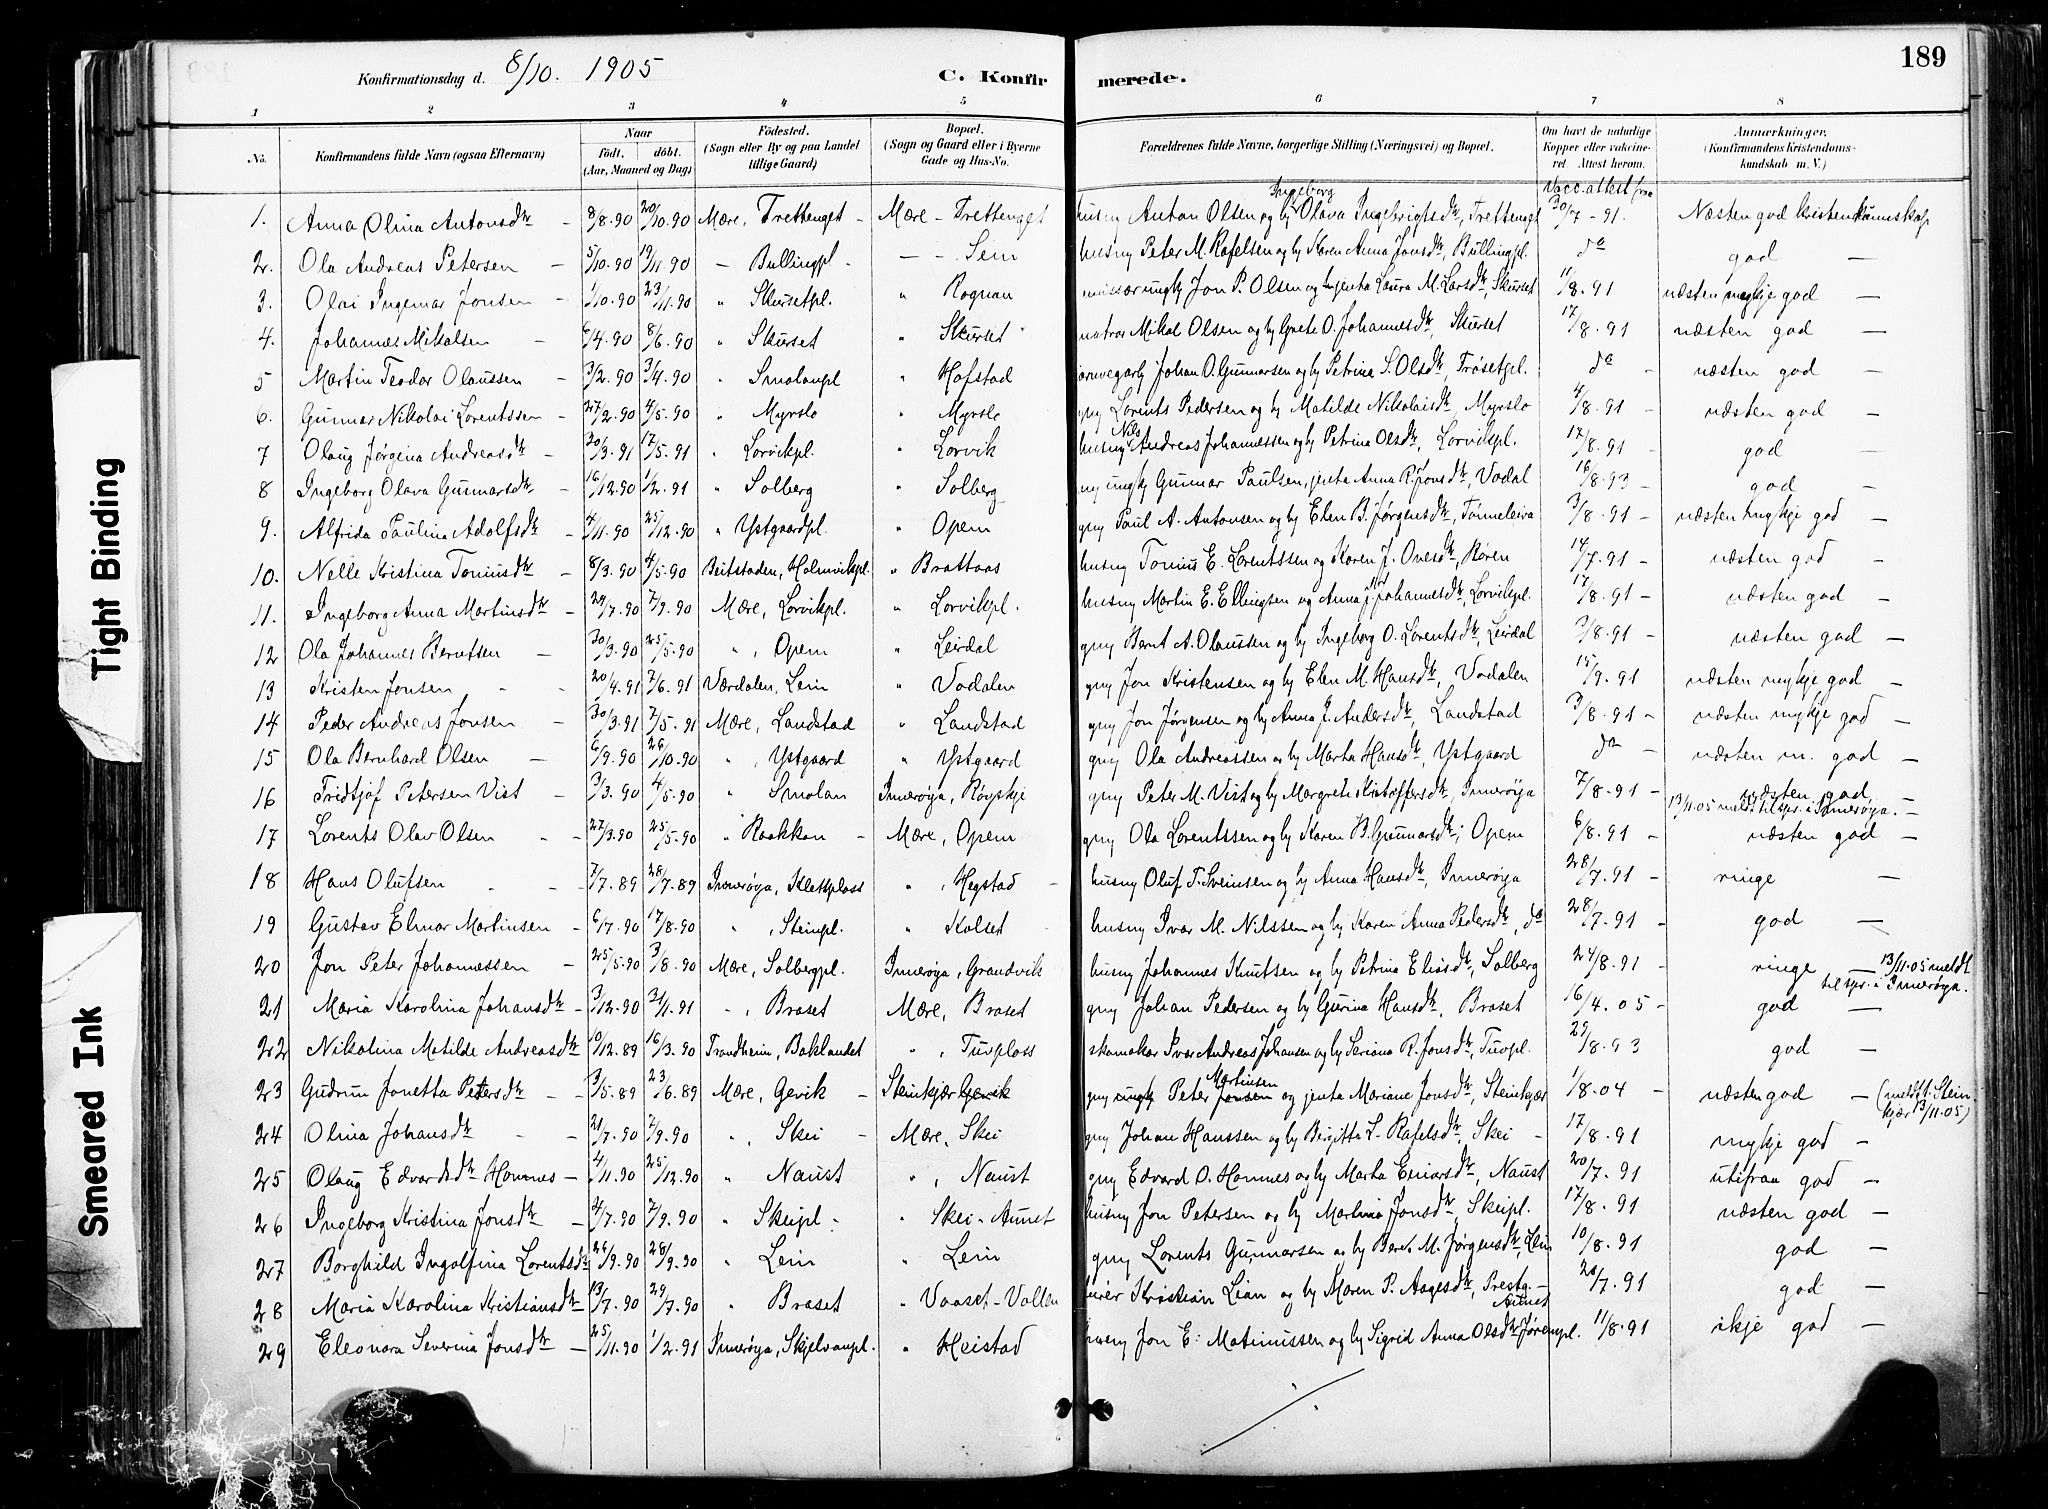 189
Konfirmationsdag d. 8/10. 1905 C. Konfirmerede.
1 2 3 4 5 6 7 8
No. Konfirmandens fulde Navn (ogsaa Efternavn) Naar födt. döbt. (Aar, Maaned og Dag) Födested. (Sogn eller By og paa Landet tillige Gaard) Bopæl. (Sogn og Gaard eller i Byerne Gade og Hus-No. Forældrenes fulde Navne, borgerlige Stilling (Næringsvei) og Bopæl. Om havt de naturlige Kopper eller vaccineret Attest herom. Anmærkninger. (Konfirmandens Kristendomskundskab m. V.)
Vacc. attest fra
1. Anna Olina Antonsdtr 8/8.90 20/10.90 Mære, Trettenget Mære - Trettenget husmy Anton Olsen og hy Ingeborg Olava Ingebrigtsdtr, Trettenget 30/7-91. Næsten god kristenkunnskap
2. Ola Andreas Petersen 5/10.90 19/11.90 - Bullingpl. - - Sem husmy Peter M. Rafelsen og hy Karen Anna Jonsdtr, Bullingpl. do god -
3. Olai Ingemar Jonsen 1/10.90 23/11.90 " Skursetpl. " Rognan ungk Jon P. Olsen og jenta Laura M. Larsdtr, Skurset 11/8.91 næsten mykje god -
4. Johannes Mikalsen 6/4.90 8/6.90 " Skurset " Skurset matros Mikal Olsen og hy Grete O. Johannesdtr, Skurset 17/8.91 næsten god -
5 Martin Teodor Olaussen 3/2.90 3/4.90 " Smolanpl " Hofstad Johan O. Gunnarsen og hy Petrina S. Olsdtr, Trøsetpl. do næsten god -
6. Gunnar Nikolai Lorentssen 27/2.90 4/5.90 " Myrslo " Myrslo gmy Lorents Pedersen og hy Matilde Nikolaisdtr, Myrslo 4/8.91 næsten god -
7 Olaug Jørgina Andreasdtr 30/3.91 17/5.91 " Lorvikpl. " Lorvik husmy Nils Andreas Johannessen og hy Petrina Olsdtr, Lorvikpl. 17/8.91 god -
8 Ingeborg Olava Gunnarsdtr 16/12.90 1/2.91 " Solberg " Solberg ungk Gunnar Paulsen, jenta Anna R. Jonsdtr Vodal 16/8.93 god -
9. Alfrida Paulina Adolfsdtr 4/11.90 25/12.90 " Ystgaardpl. " Opem gmy Paul A. Antonsen og hy Elen B. Jørgensdtr, Tønneleira 3/8.91 næsten mykje god -
10. Nelle Kristina Toniusdtr 8/3.90 4/5.90 Beitstaden, Holmvikpl. " Brattaas husmy Tonius E. Lorentssen og Karen J. Ovesdtr, Røren 14/7.91 næsten god -
11. Ingeborg Anna Martinsdtr 29/7.90 7/9.90 Mære, Lorvikpl. " Lorvikpl. husmy Martin E. Ellingsen og Anna Johannesdtr, Lorvikpl. 17/8.91 næsten god -
12 Ola Johannes Berntsen 30/3.90 25/5.90 " Opem " Leirdal gmy Bernt A. Olaussen og hy Ingeborg O. Lorentsdtr, Leirdal 3/8.91 næsten god -
13 Kristen Jonsen 20/4.91 7/6.91 Værdalen, Lein " Vodalen gmy Jon Kristensen og hy Elen M. Hansdtr, Vodalen 15/9.91 næsten mykje god -
14 Peder Andreas Jonsen 30/3.91 7/5.91 Mære, Landstad " Landstad gmy Jon Jørgensen og hy Anna J. Andersdtr, Landstad 3/8.91 næsten mykje god -
15 Ola Bernhard Olsen 6/9.90 26/10.90 " Ystgaard " Ystgaard gmy Ola Andreassen og hy Marta Hansdtr, Ystgaard do næsten m. god -
16 Fridtjof Petersen Vist 3/3.90 4/5.90 " Smolan Inerøya, Røyskje gmy Peter M. Vist og hy Margrete Kristoffersdtr, Inerøya 7/8.91 næsten god - 13/11.05 meldt til spr. i Inerøya.
17 Lorents Olav Olsen 27/3.90 25/5.90 " Raakkan Mære, Opem gmy Ola Lorentssen og hy Karen B. Gunnarsdtr, Opem 6/8.91 næsten god -
18 Hans Olufsen 7/7.89 28/7.89 Inerøya, Klettplass " Hegstad husmy Oluf T. Sveinsen og hy Anna Hansdtr, Inerøya 28/7.91 ringe -
19 Gustav Elmar Martinsen 6/7.90 17/8.90 " Steinpl. " Kolset husmy Ivar M. Nilssen og hy Karen Anna Pedersdtr, do 28/7.91 god -
20 Jon Peter Johannessen 25/5.90 3/8.90 Mære, Solbergpl. Inerøya, Grandvik husmy Johannes Knutsen og hy Petrina Eliasdtr, Solberg 24/8.91 ringe - 13/11.05 meldt til spr. i Inerøya.
21 Maria Karolina Johansdtr 3/12.90 31/1.91 " Braset Mære, Braset gmy Johan Pedersen og hy Gurina Hansdtr, Braset 16/4.05 god -
22 Nikolina Matilde Andreasdtr 10/12.89 16/3.90 Trandheim, Baklandet " Tuvplass skomakar Ivar Andreas Johansen og hy Seriana R. Jonsdtr, Tuvpl. 29/8.93 god -
23 Gudrun Jonetta Petersdtr 3/5.89 23/6.89 Mære, Gevik Steinkjær Gevik gmy ungk Peter Martinsen Jonsen og jenta Mariane Jonsdtr, Steinkjær 1/8.04 næsten god - (meldt t. Steinkjær 13/11.05)
24 Olina Johansdtr 21/7.90 7/9.90 " Skei Mære, Skei gmy Johan Hanssen og hy Birgitta L. Rafelsdtr, Skei 17/8.91 mykje god -
25 Olaug Edvardsdtr Hamnes 4/11.90 25/12.90 " Naust " Naust gmy Edvard O. Hamnes og hy Marta Einarsdtr, Naust 20/7.91 utifraa god -
26 Ingeborg Kristina Jonsdtr 4/7.90 7/9.90 " Skeipl. " Skei-Aunet husmy Jon Petersen og hy Martina Jonsdtr, Skeipl. 17/8.91 næsten god -
27 Borghild Ingolfina Lorentsdtr 26/9.90 28/9.90 " Lein " Lein gmy Lorents Gunnarsen og hy Beret M. Jørgensdtr, Lein 10/8.91 god -
28 Maria Karolina Kristiansdtr 13/7.90 29/7.90 " Braset " Vaaset-Vollen Kristian Lian og hy Maren P. Aagesdtr, Prestg. Aunet 20/7.91 god -
29 Eleonora Severina Jonsdtr 25/11.90 1/2.91 Inerøya, Skjelvanpl. " Heistad Jon E. Matinussen og hy Sigrid Anna Olsdtr Jørempl. 11/8.91 ikje god -
Tight Binding
Smeared Ink